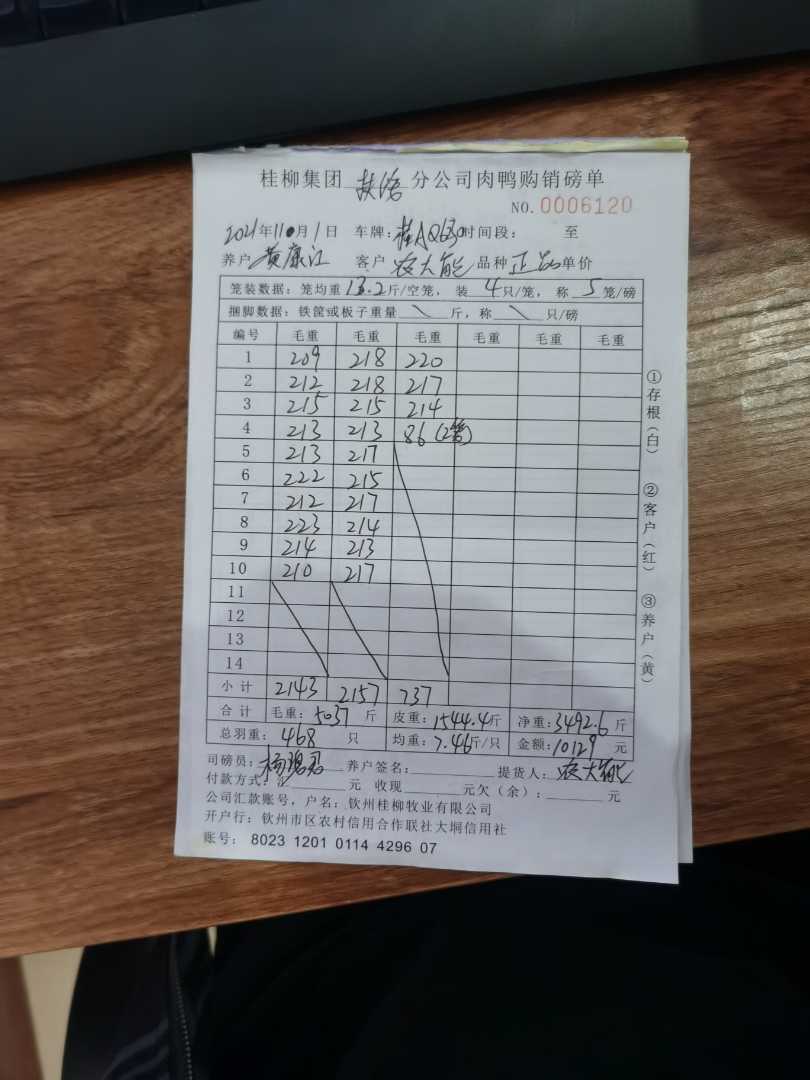 桂柳集团 扶绥 分公司肉鸭购销磅单
NO.0006120
2021年11月1日 车牌:桂AQ630时间段: 至
养户 黄康江 客户 农大能 品种 正品 单价
笼装数据:笼均重13.2斤/空笼,装 4 只/笼,称 5 笼/磅
捆脚数据:铁筐或板子重量 \ 斤,称 \ 只/磅
编号 毛重 毛重 毛重 毛重 毛重 毛重
1 209 218 220
2 212 218 217
3 215 215 214
4 213 213 86(2笼)
5 213 217
6 222 215
7 212 217
8 223 214
9 214 213
10 210 217
11
12
13
14
小计 2143 2157 737
合计 毛重:5037 斤 皮重:1544.4斤 净重:3492.6斤
总羽重:468 只 均重:7.46斤/只 金额:10129 元
司磅员: 养户签名: 提货人:农大能
付款方式:汇 元 收现 元欠(余): 元
公司汇款账号,户名:钦州桂柳牧业有限公司
开户行:钦州市区农村信用合作联社大垌信用社
账号: 8023 1201 0114 4296 07
①存根(白)
②客户(红)
③养户(黄)